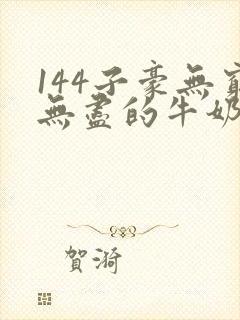 144子豪無窮
無盡的牛奶
賀漪